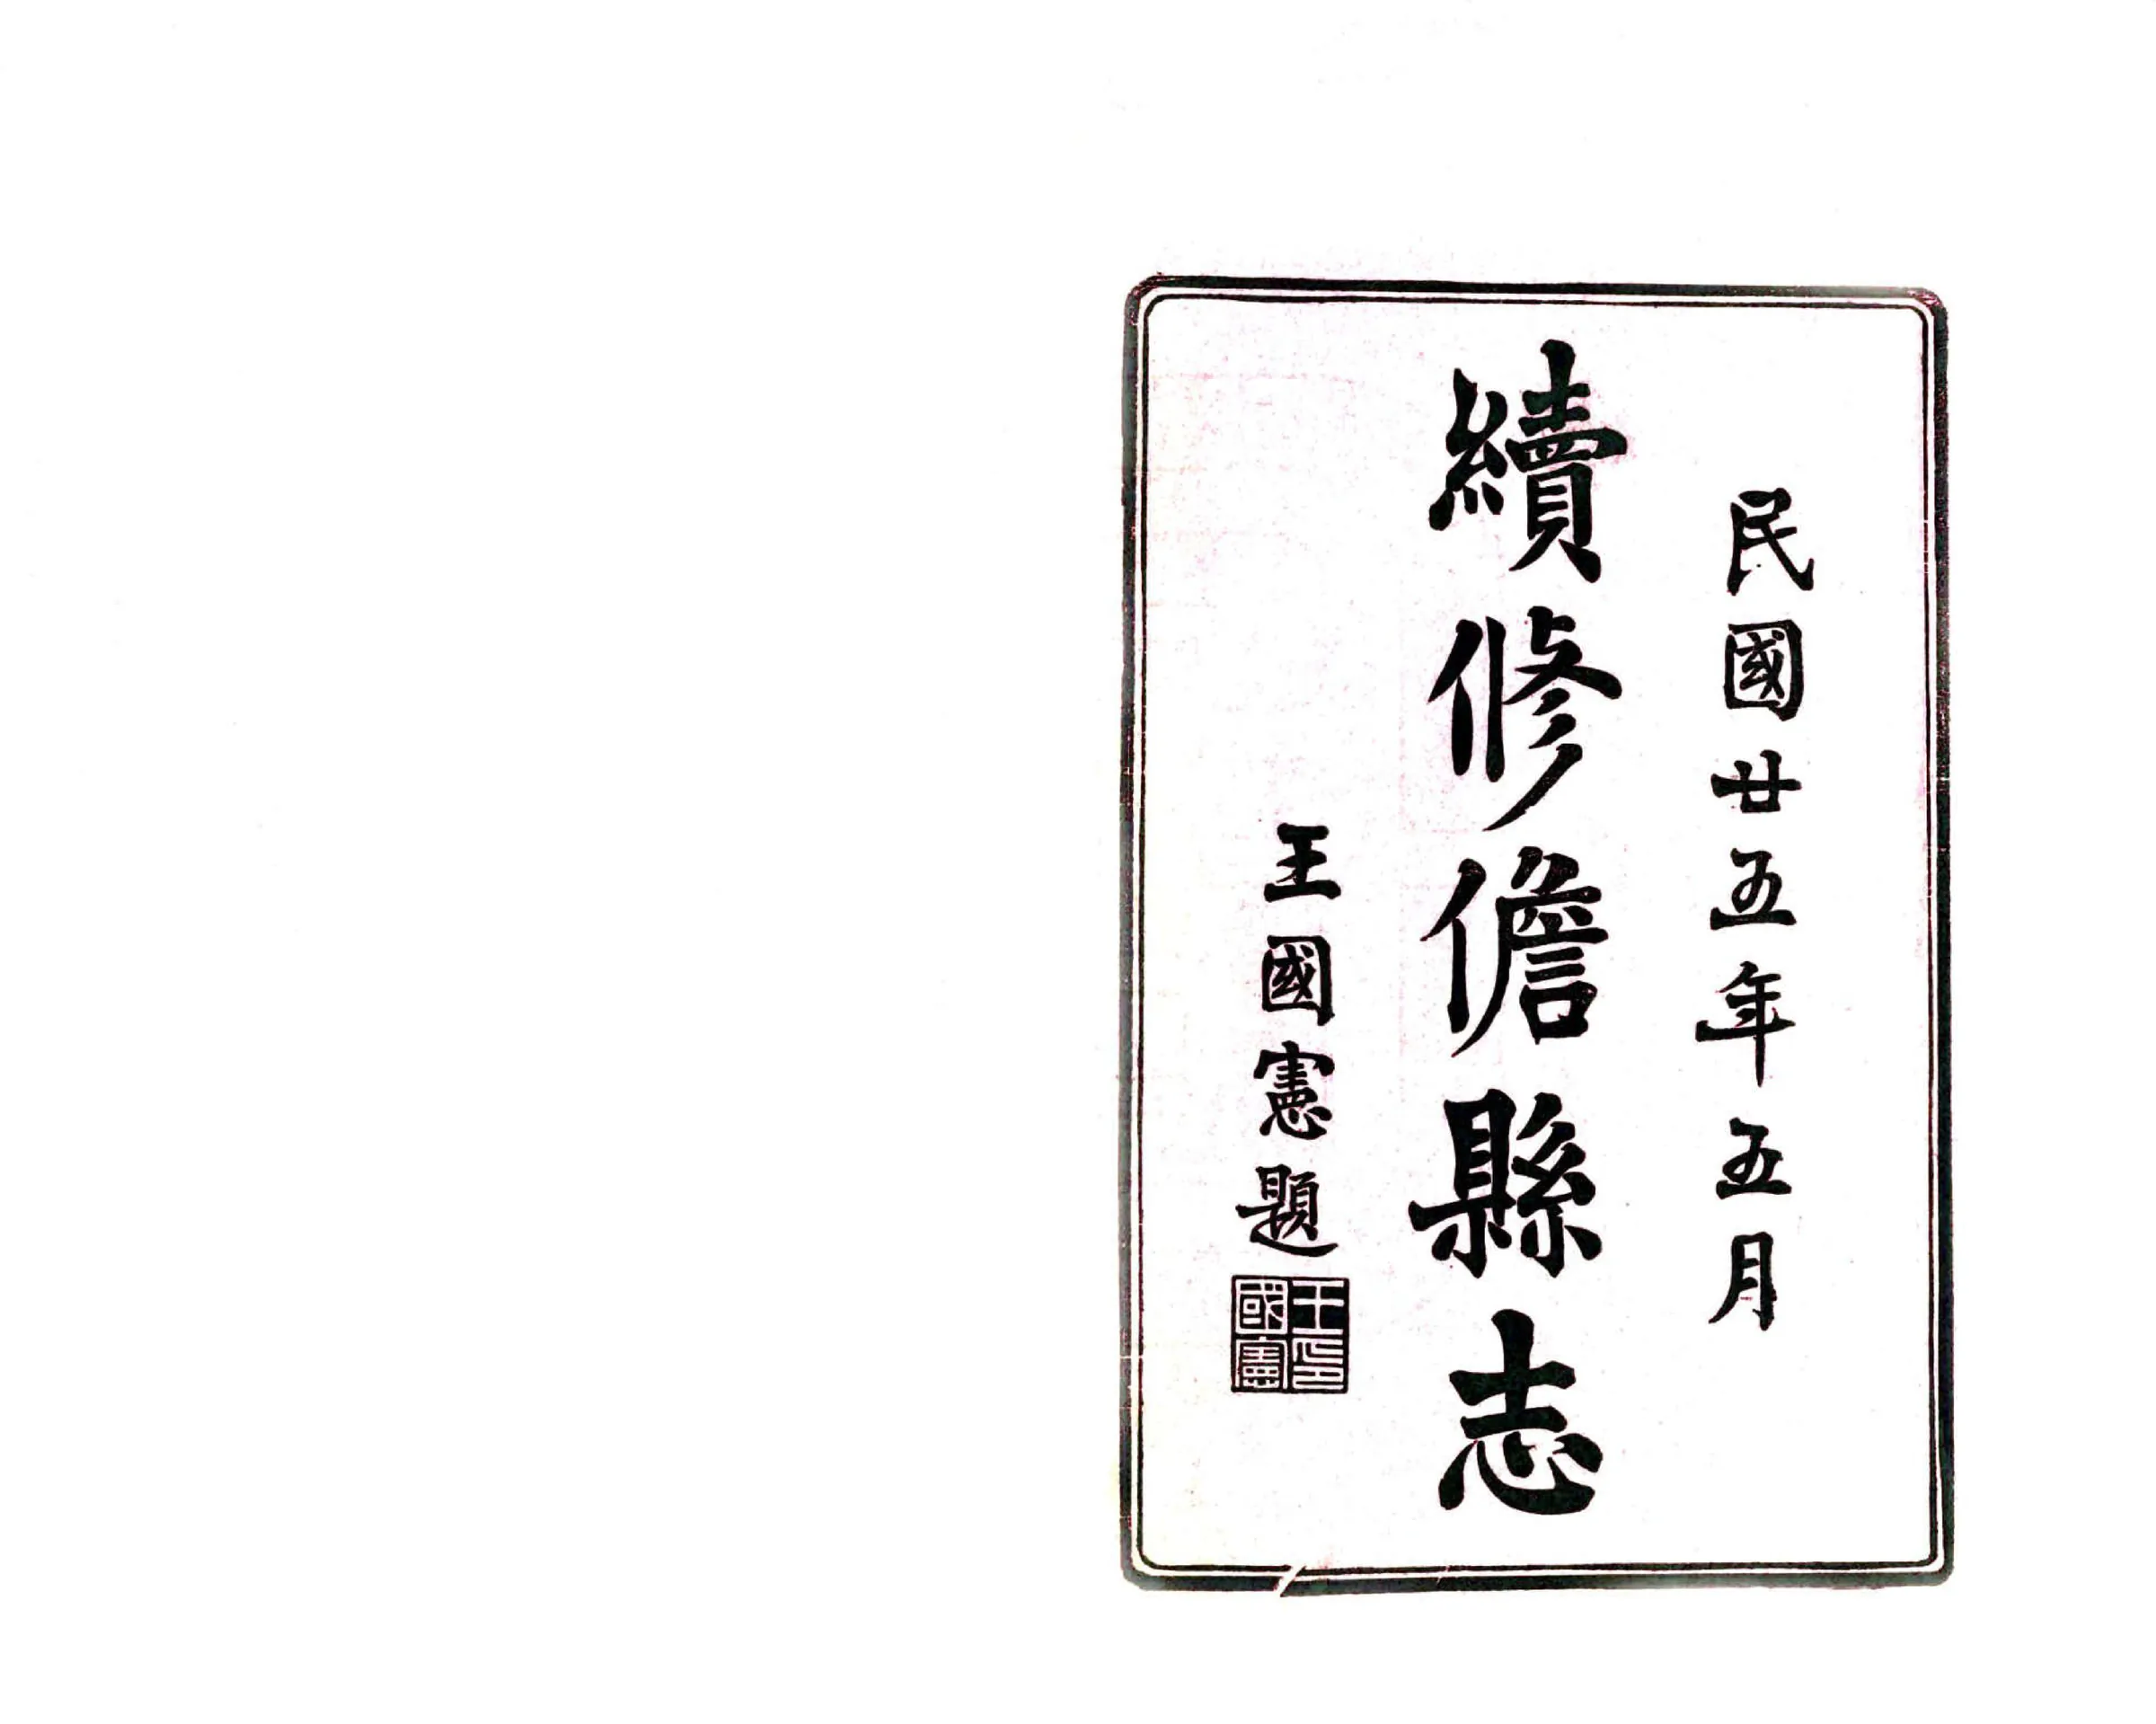 民國廿五年五月
續修儋縣志
王國憲題
王印
國憲